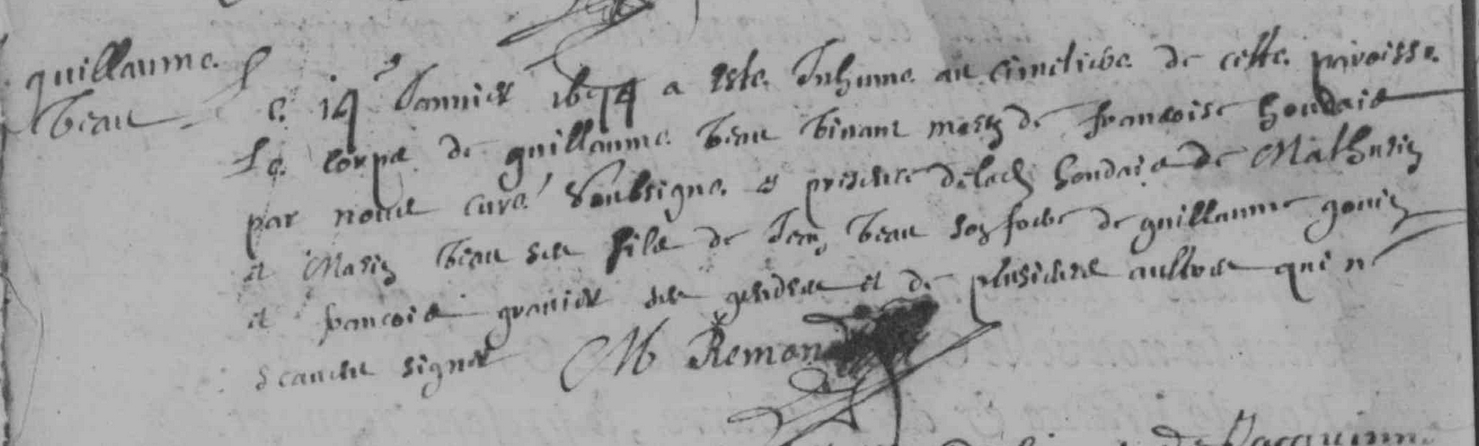 guillaume
beau
Le 14e Janvier 1674 a este Inhume au cimetiere de cette paroisse
le corps de guillaume beau vivant mary de francoise houdaie
par nous curé soubsigne en presence de lad houdaie de Mathurin
et Marin beau ses fils de Jean beau son frere de guillaume gouin
et francois granier ses gendres et de plusieurs aultres qui ne
scauent signer M Remond